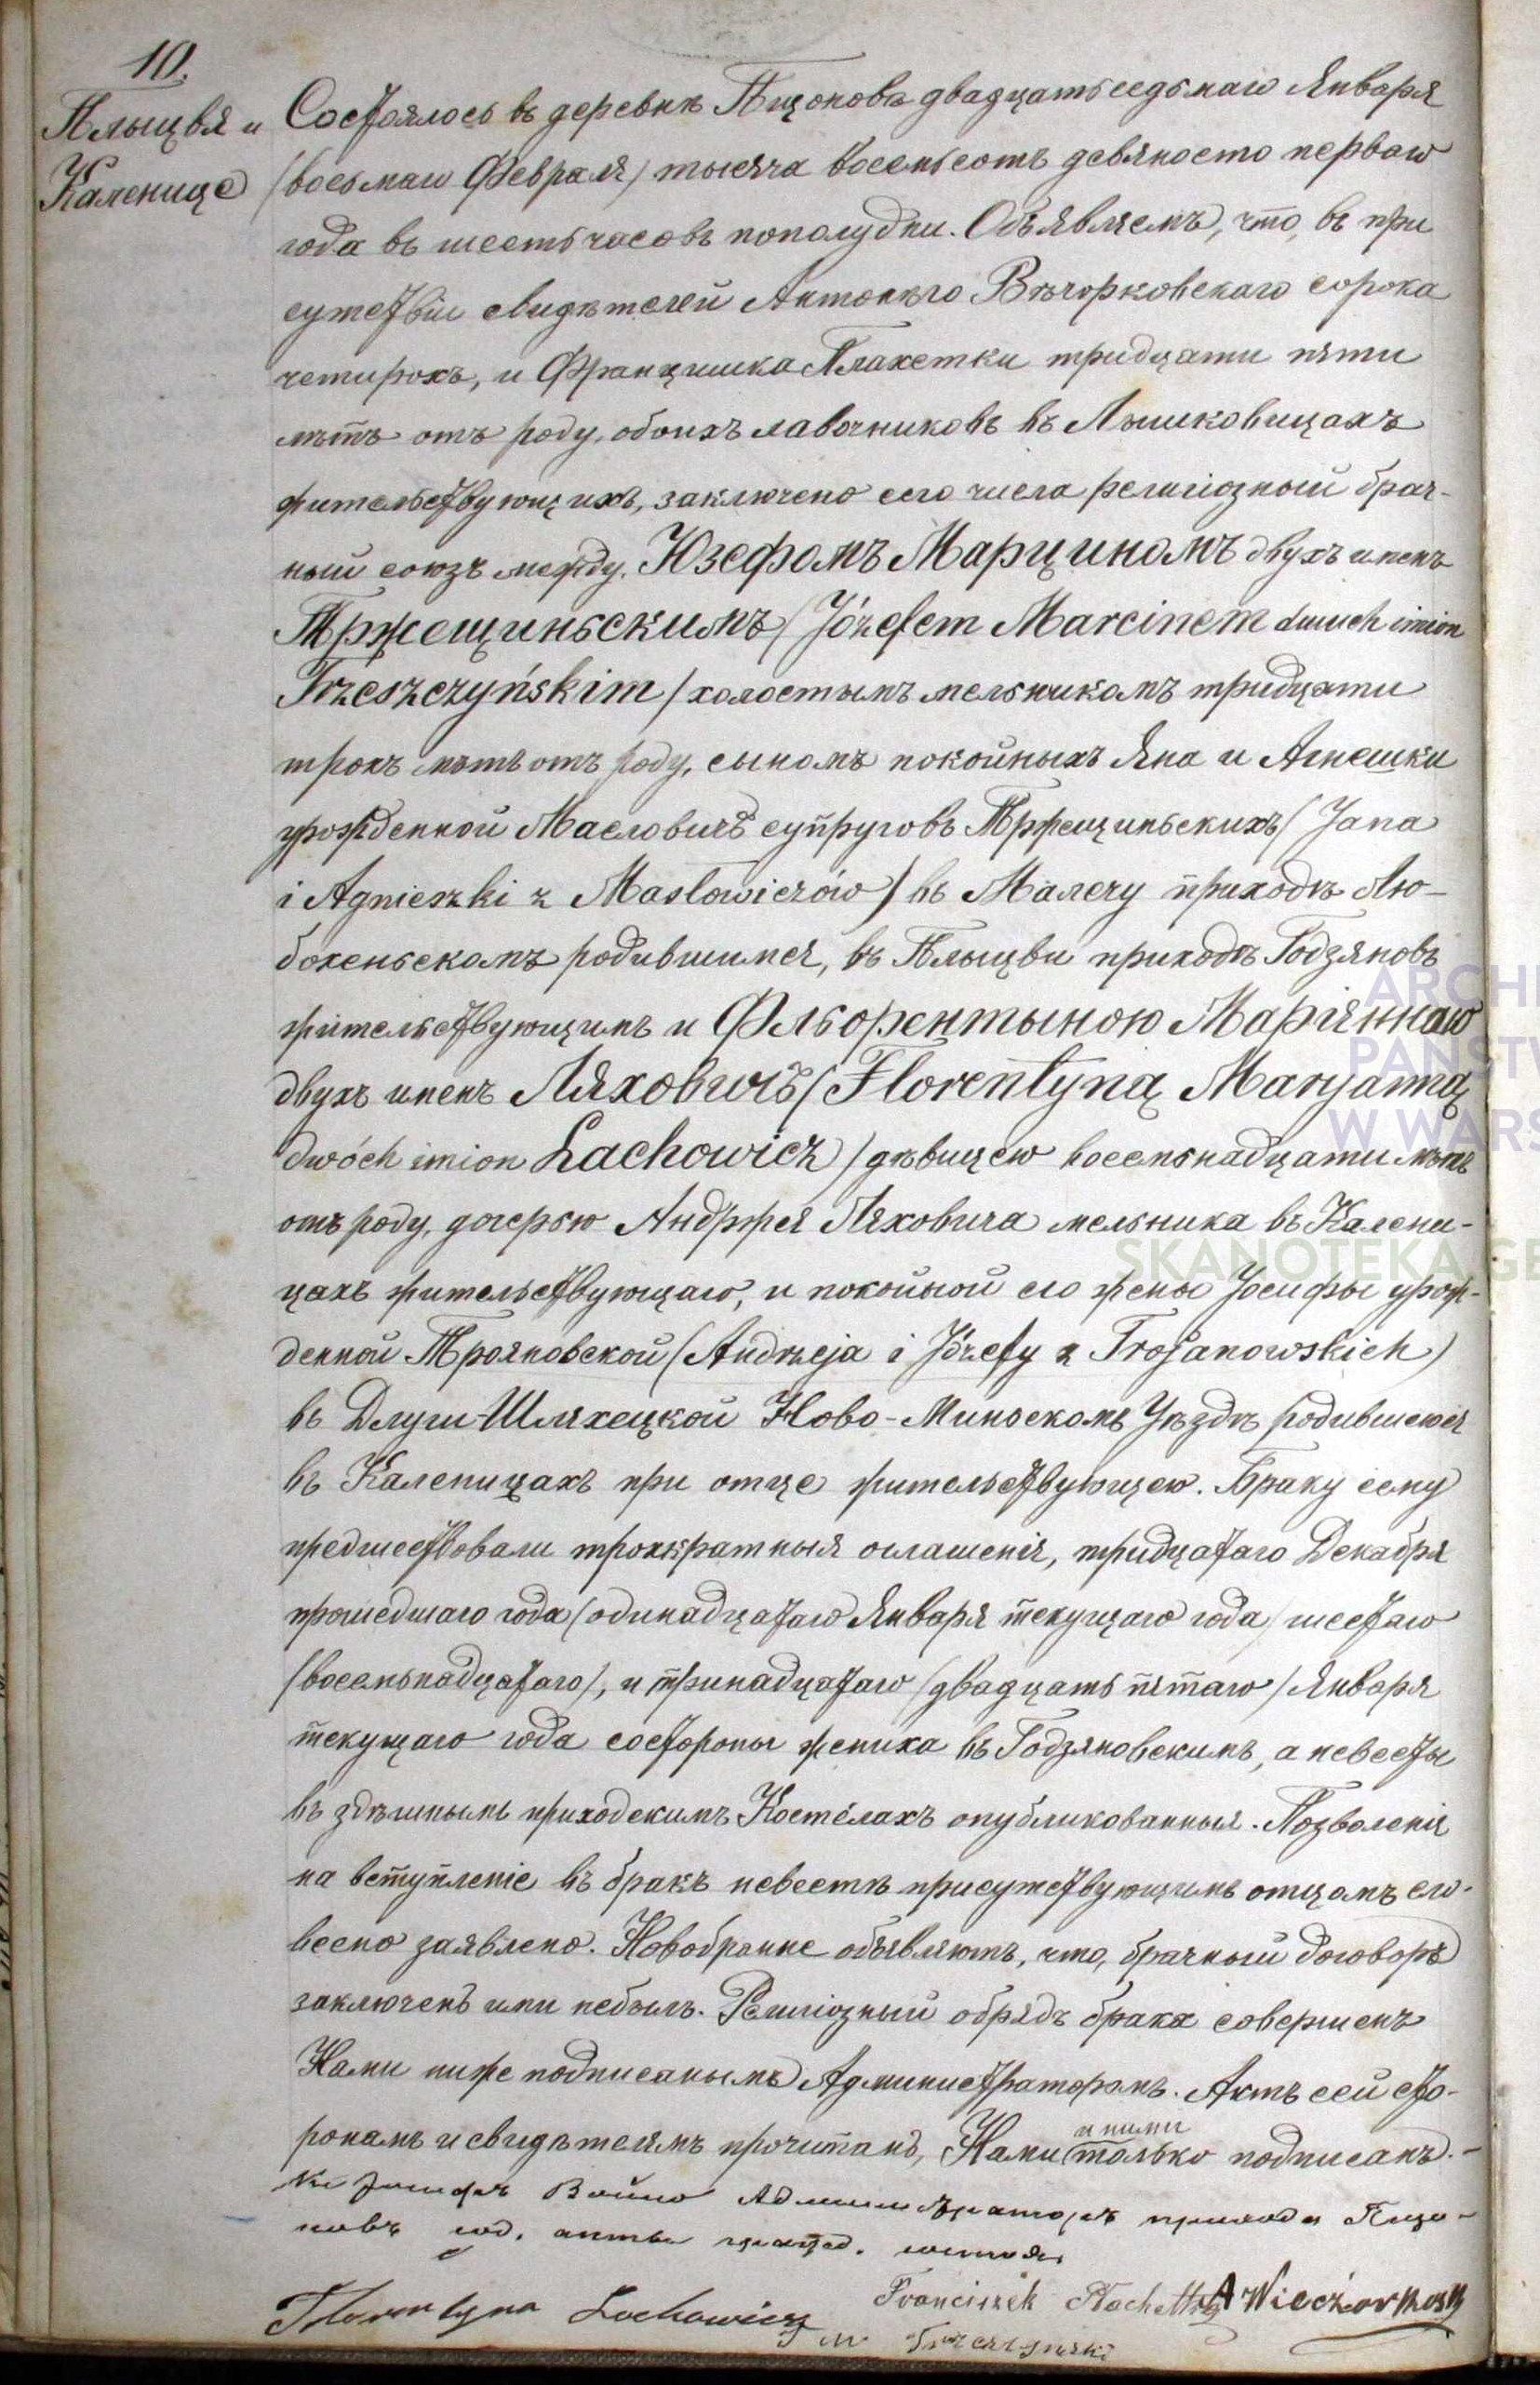 10.
Плыцвя и
Каленице
Состоялось въ деревнѣ Пщонова двадцать седьмаго Января
(восьмаго Февраля) тысяча восемьсотъ девяносто перваго
года въ шесть часовъ пополудни. Объявляемъ, что, въ при
сутствіи свидѣтелей Антонѣго Вѣчорковскаго сорока
четирохъ, и Францишка Плахетки тридцати пяти
лѣтъ отъ роду, обоихъ лавочниковъ въ Лышковицахъ
жительствующихъ, заключено сего числа религіозный брач-
ный союзъ между, Юзефомъ Марциномъ двухъ именъ
Тржещиньскимъ (Józefem Marcinem dwuch imion
Trzeszczyńskim) холостымъ мельникомъ тридцати
трохъ лѣтъ отъ роду, сыномъ покойныхъ Яна и Агнешки
урожденной Масловичъ супруговъ Тржещиньскихъ (Jana
i Agnieszki z Masłowiczów) въ Малечу приходѣ Лю-
бохеньскомъ родившимся, въ Плыцви приходѣ Годзяновъ
жительствующимъ и Фльорентыною Маріянною
двухъ именъ Ляховичъ (Florentyną Maryanną
dwóch imion Lachowicz) дѣвицею восемьнадцати лѣтъ
отъ роду, дочерью Андржея Ляховича мельника въ Калени-
цахъ жительствующаго, и покойной его жены Іосифы урож-
денной Трояновской (Andrzeja i Józefy z Trojanowskich)
въ Длуги-Шляхецкой Ново-Миньскомъ Уѣздѣ родившеюся
въ Каленицахъ при отце жительствующею. Браку сему
предшествовали трохкратныя оглашенія, тридцатаго Декабря
прошедшаго года (одинадцатаго Января текущаго года) шестаго
(восемьнадцатаго), и тринадцатаго (двадцать пятаго) Января
текущаго года состороны жениха въ Годзяновскимъ, а невесты
въ здѣшнымъ приходскимъ Костёлахъ опубликованныя. Позволенія
на вступленіе въ бракъ невестѣ присутствующимъ отцомъ сло-
весно заявлено. Новобранне объявляютъ, что, брачный договоръ
заключенъ ими небылъ. Религіозный обрядъ брака совершенъ
Нами ниже подписанымъ Администраторомъ. Актъ сей сто-
ронамъ и свидѣтелямъ прочитанъ, Нами и ними только подписанъ.-
Кс Іосифъ Войно Администраторъ прихода Пщо-
новъ сод. акты гражд. состоя
Franciszek Płachetka A Wieczorkosky
Florentyna Lachowicz
J M Trzeszczyński
ARCH
PAŃSTW
W WARS
SKANOTEKA.GE